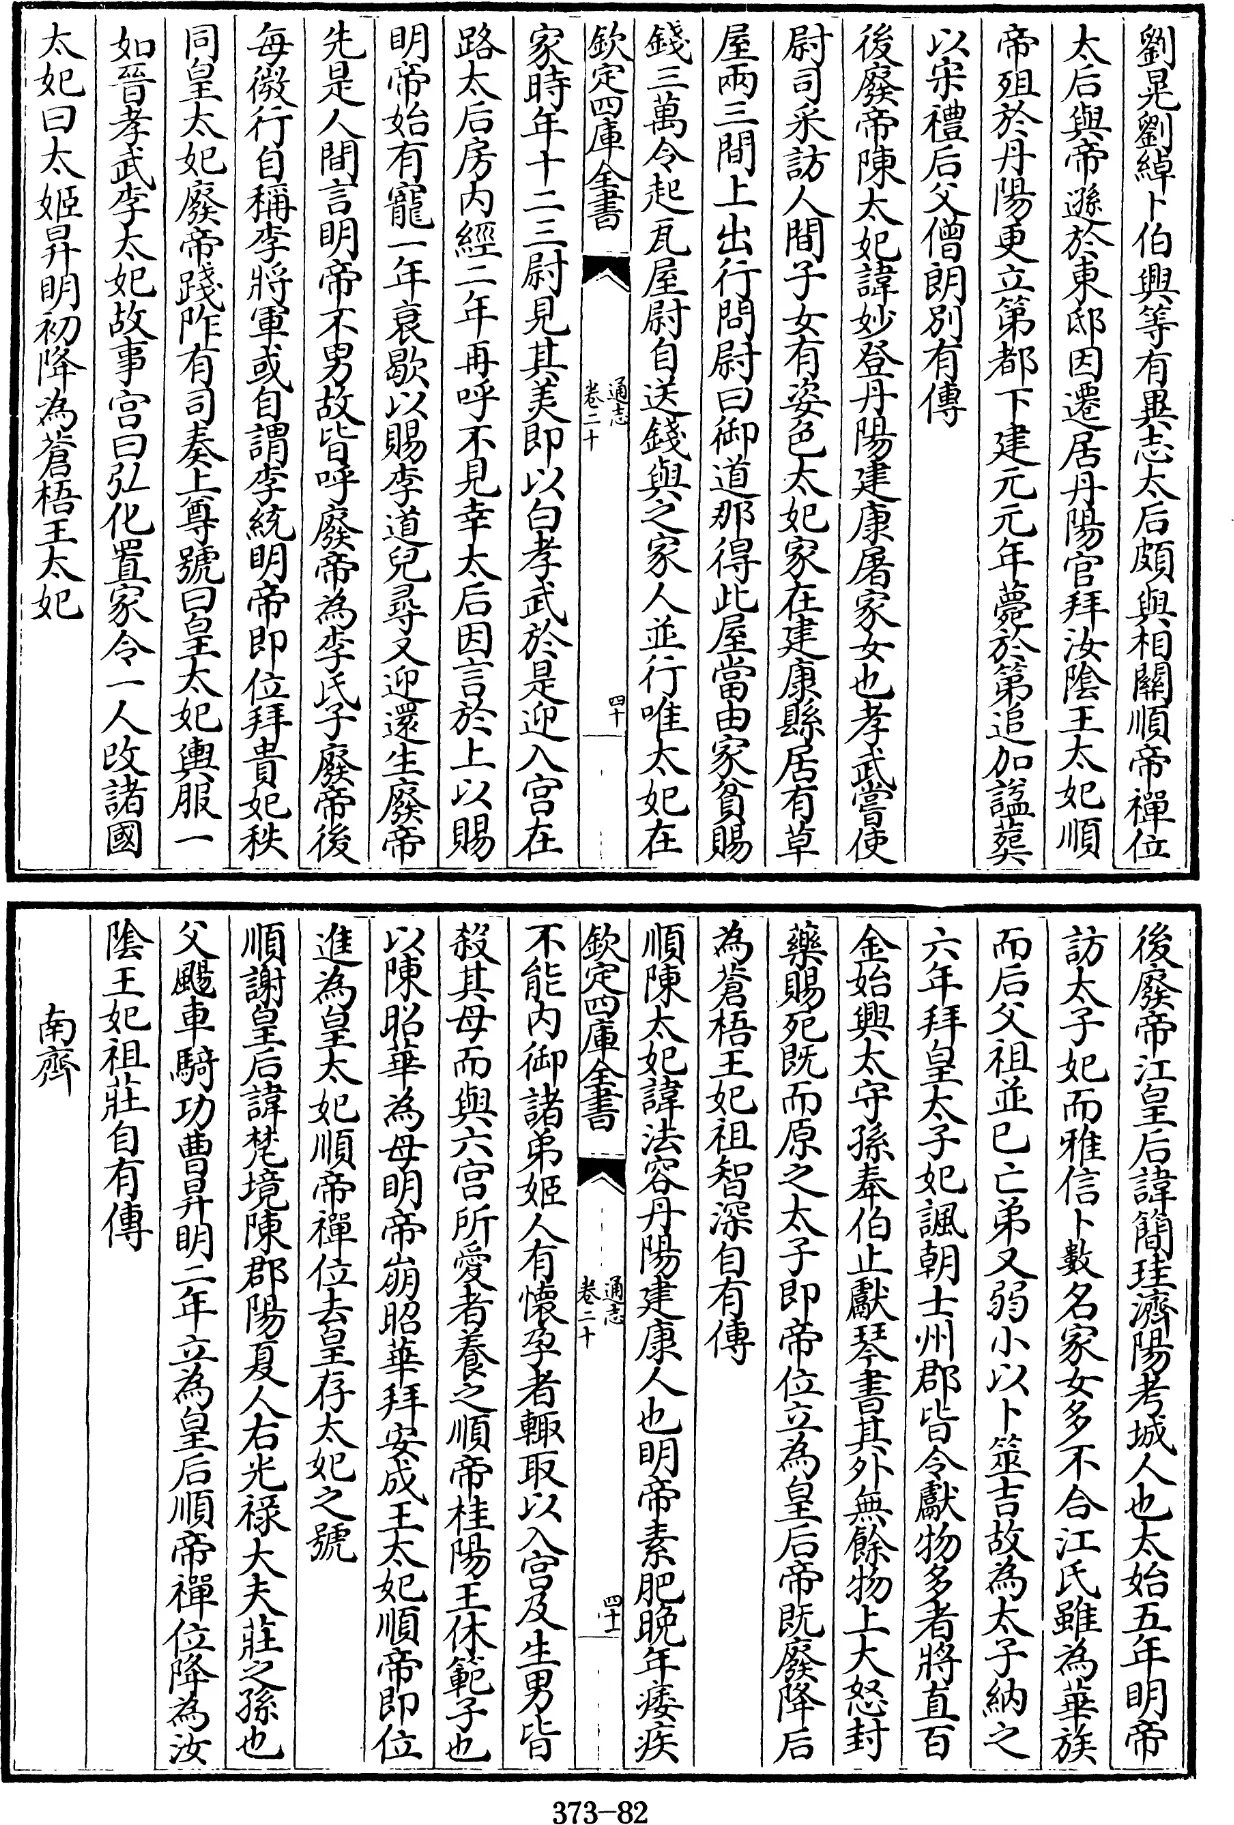 劉晃劉綽卜伯興等有異志太后頗與相關順帝禪位
太后與帝遜於東邸因遷居丹陽宫拜汝隂王太妃順
帝殂於丹陽更立第都下建元元年薨於第追加諡葬
以宋禮后父僧朗别有傳
後廢帝陳太妃諱妙登丹陽建康屠家女也孝武嘗使
尉司采訪人間子女有姿色太妃家在建康縣居有草
屋兩三間上出行問尉曰御道那得此屋當由家貧賜
錢三萬令起瓦屋尉自送錢與之家人並行唯太妃在
欽定四庫全書
通志
卷二十
四十
家時年十二三尉見其美即以白孝武於是迎入宫在
路太后房内經二年再呼不見幸太后因言於上以賜
明帝始有寵一年衰歇以賜李道兒尋又迎還生廢帝
先是人間言明帝不男故皆呼廢帝為李氏子廢帝後
每微行自稱李將軍或自謂李統明帝即位拜貴妃秩
同皇太妃廢帝踐阼有司奏上尊號曰皇太妃輿服一
如晉孝武李太妃故事宫曰弘化置家令一人改諸國
太妃曰太姬昇明初降為蒼梧王太妃
後廢帝江皇后諱簡珪濟陽考城人也太始五年明帝
訪太子妃而雅信卜數名家女多不合江氏雖為華族
而后父祖並已亡弟又弱小以卜筮吉故為太子納之
六年拜皇太子妃諷朝士州郡皆令獻物多者將直百
金始興太守孫奉伯止獻琴書其外無餘物上大怒封
藥賜死既而原之太子即帝位立為皇后帝既廢降后
為蒼梧王妃祖智深自有傳
順陳太妃諱法容丹陽建康人也明帝素肥晚年痿疾
欽定四庫全書
通志
卷二十
四十一
不能内御諸弟姬人有懷孕者輙取以入宫及生男皆
殺其母而與六宫所愛者養之順帝桂陽王休範子也
以陳昭華為母明帝崩昭華拜安成王太妃順帝即位
進為皇太妃順帝禪位去皇存太妃之號
順謝皇后諱梵境陳郡陽夏人右光祿大夫莊之孫也
父颺車騎功曹昇明二年立為皇后順帝禪位降為汝
隂王妃祖莊自有傳
南齊
373-82